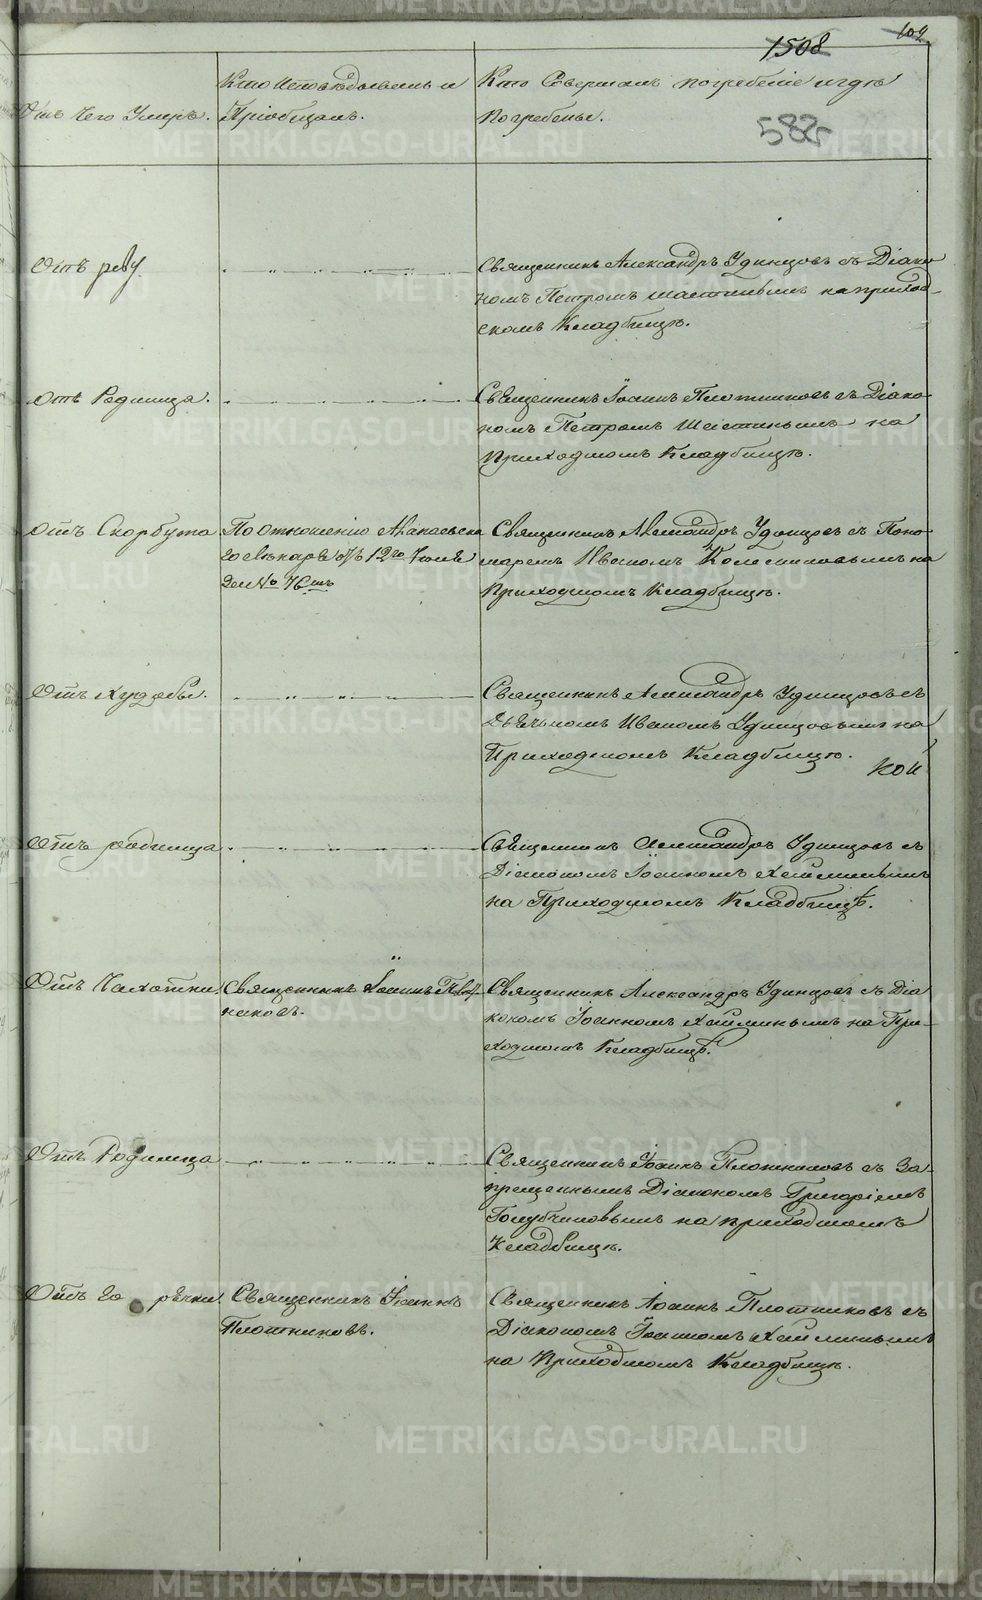 1508
582
Отъ чего умеръ.
Кто исповѣдывалъ и
Пріобщалъ.
Кто Совершалъ погребеніе и гдѣ
погребены.
Отъ реву
Священникъ Александръ Удинцовъ съ Діако
номъ Петромъ на приход-
скомъ Кладбищѣ.
отъ Родимца.
Священникъ Іоаннъ Плотниковъ съ Діако-
номъ Петромъ на
Приходскомъ Кладбищѣ.
отъ Скорбута
По отношенію Алапаевска
го лѣкаря отъ 12го Іюля
за № 76мъ
Священникъ Александръ Удинцовъ съ Поно-
маремъ Иваномъ на
Приходскомъ Кладбищѣ.
Отъ худобы.
Священникъ Александръ Удинцовъ съ
Дьячкомъ Иваномъ Удинцовымъ на
Приходскомъ Кладбищѣ.
кой
Отъ родимца
Священникъ Александръ Удинцовъ съ
Діакономъ Іоанномъ
на Приходскомъ Кладбищѣ.
Отъ Чахотки.
Священникъ Іоаннъ Плот-
никовъ.
Священникъ Александръ Удинцовъ съ Діа
кономъ Іоанномъ на При-
ходскомъ Кладбищѣ.
Отъ Родимца
Священникъ Іоаннъ Плотниковъ съ За-
прещеннымъ Діакономъ Григоріемъ
Голубчиковымъ на приходскомъ
Кладбищѣ.
Отъ го рячки.
Священникъ Іоаннъ
Плотниковъ.
Священникъ Іоаннъ Плотниковъ съ
Діакономъ Іоанномъ
на Приходскомъ Кладбищѣ.
METRIKI.GASO-URAL.RU